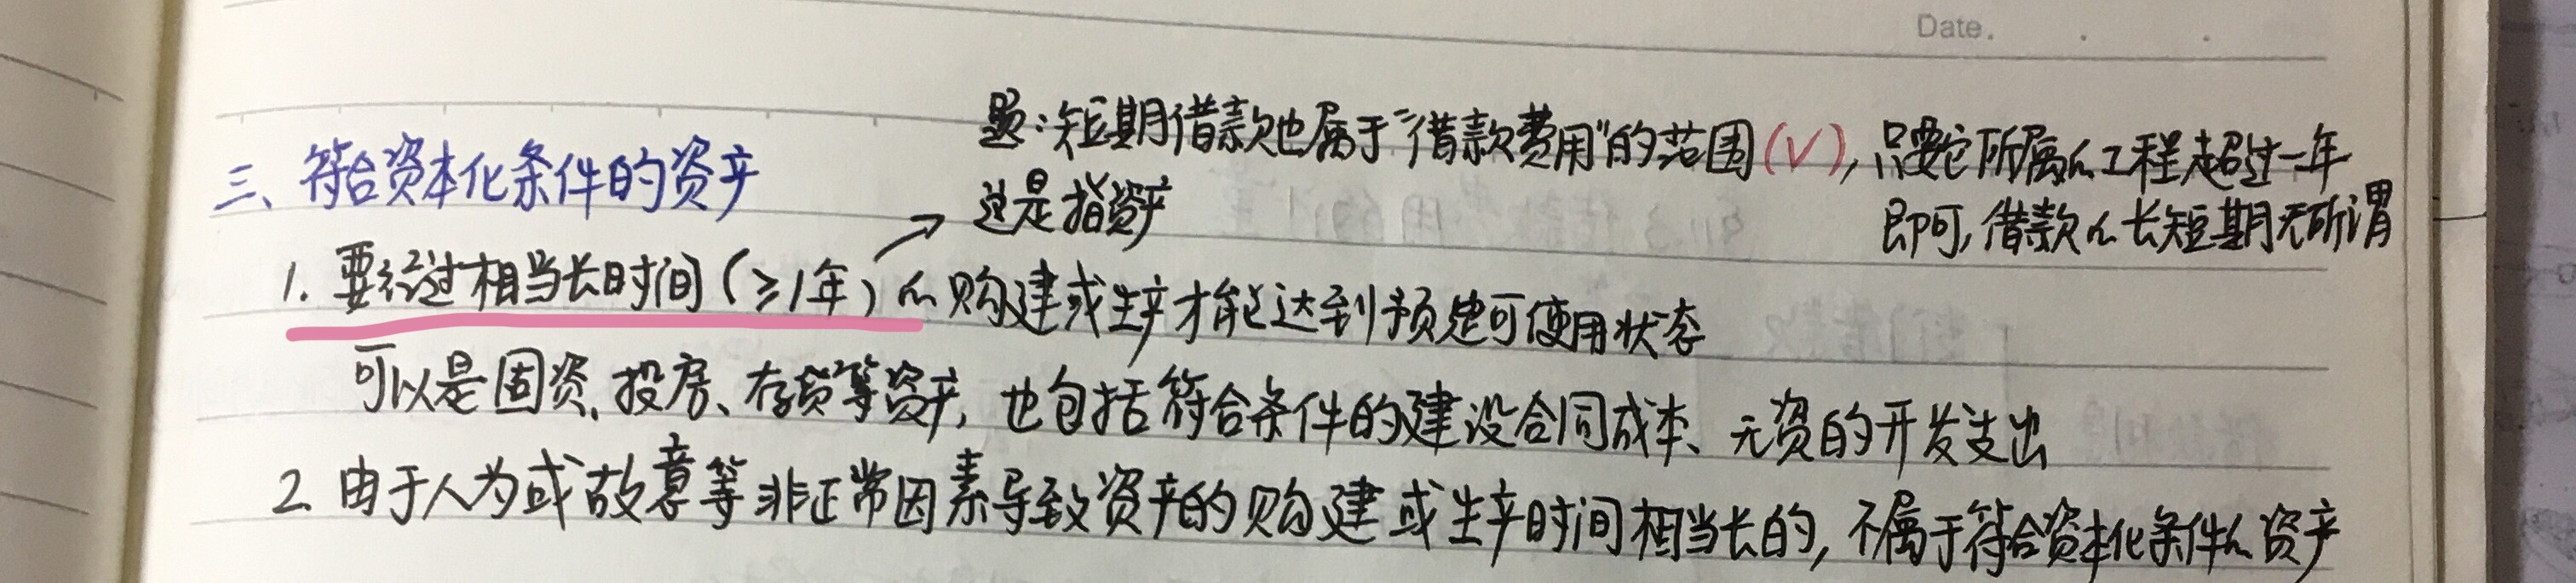 Date.
题:短期借款也属于"借款费用"的范围(√),只要它所属的工程超过一年
即可,借款的长短期无所谓
三、符合资本化条件的资产
这是指资产
1. 要经过相当长时间(≥1年)的购建或生产才能达到预定可使用状态
可以是固资、投房、存货等资产,也包括符合条件的建设合同成本、无资的开发支出
2 由于人为或故意等非正常因素导致资产的购建或生产时间相当长的,不属于符合资本化条件的资产